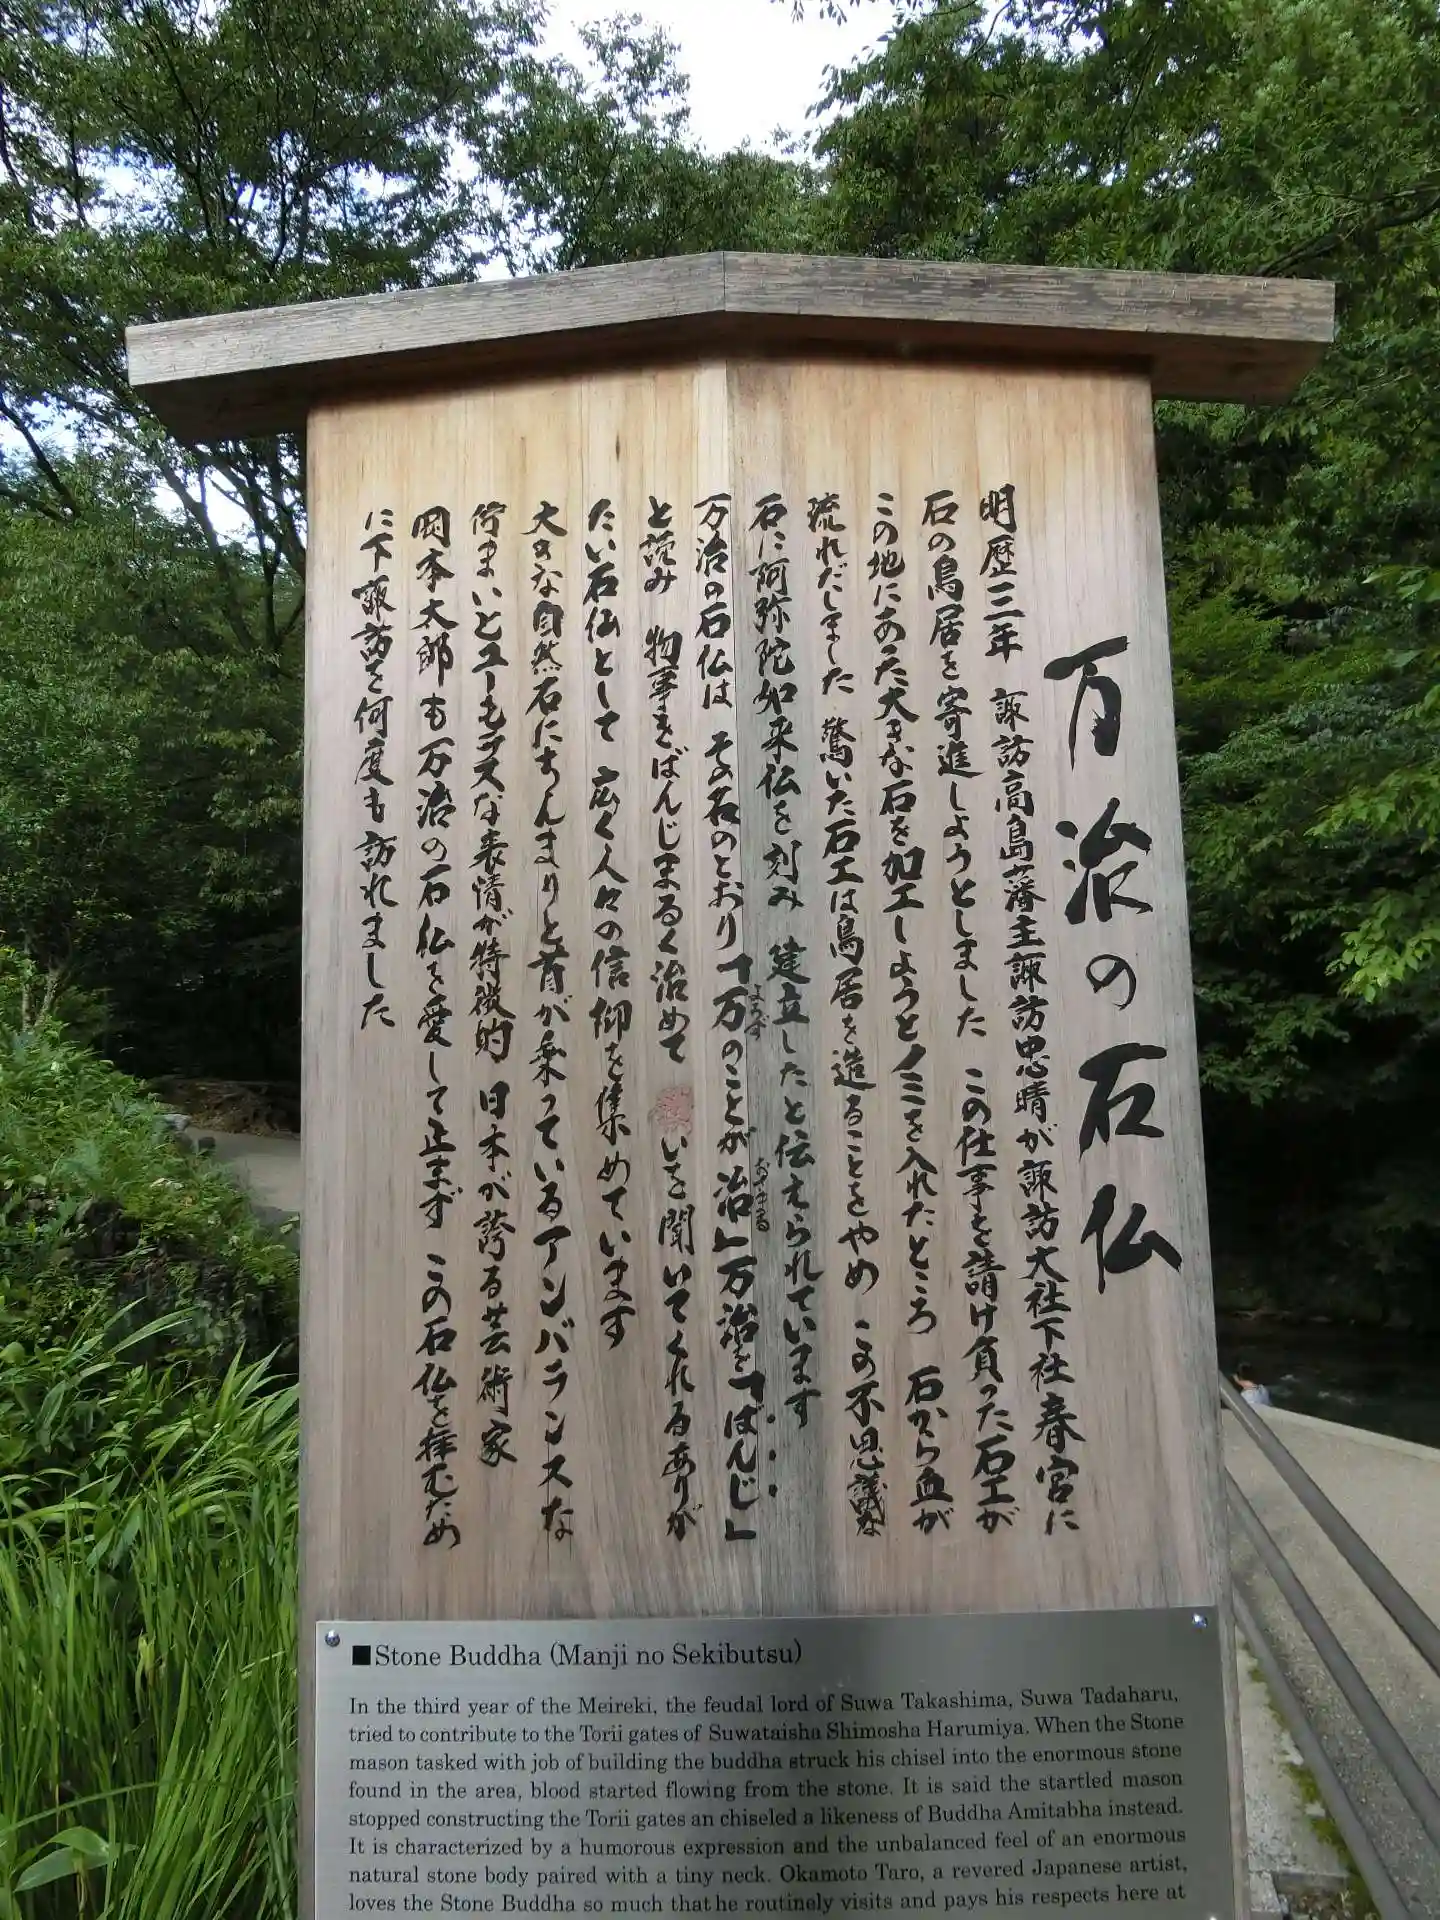 万治の石仏
明歴三年 諏訪高島藩主諏訪忠晴が諏訪大社下社春宮に
石の鳥居を寄進しようとしました この仕事を請け負った石工が
この地にあった大きな石を加工しようとノミを入れたところ 石から血が
流れだしました 驚いた石工は鳥居を造ることをやめ この不思議な
石に阿弥陀如来仏を刻み 建立したと伝えられています
万治の石仏は その名のとおり「万のことが治」万治を「ばんじ」
よろず
おさまる
と読み 物事をばんじまるく治めて いを聞いてくれるありが
たい石仏として 広く人々の信仰を集めています
大きな自然石にちんまりと首が乗っているアンバランスな
佇まいとユーモラスな表情が特徴的 日本が誇る芸術家
岡本太郎も万治の石仏を愛して止まず この石仏を拝むため
に下諏訪を何度も訪れました
■Stone Buddha (Manji no Sekibutsu)
In the third year of the Meireki, the feudal lord of Suwa Takashima, Suwa Tadaharu,
tried to contribute to the Torii gates of Suwataisha Shimosha Harumiya. When the Stone
mason tasked with job of building the buddha struck his chisel into the enormous stone
found in the area, blood started flowing from the stone. It is said the startled mason
stopped constructing the Torii gates an chiseled a likeness of Buddha Amitabha instead.
It is characterized by a humorous expression and the unbalanced feel of an enormous
natural stone body paired with a tiny neck. Okamoto Taro, a revered Japanese artist,
loves the Stone Buddha so much that he routinely visits and pays his respects here at